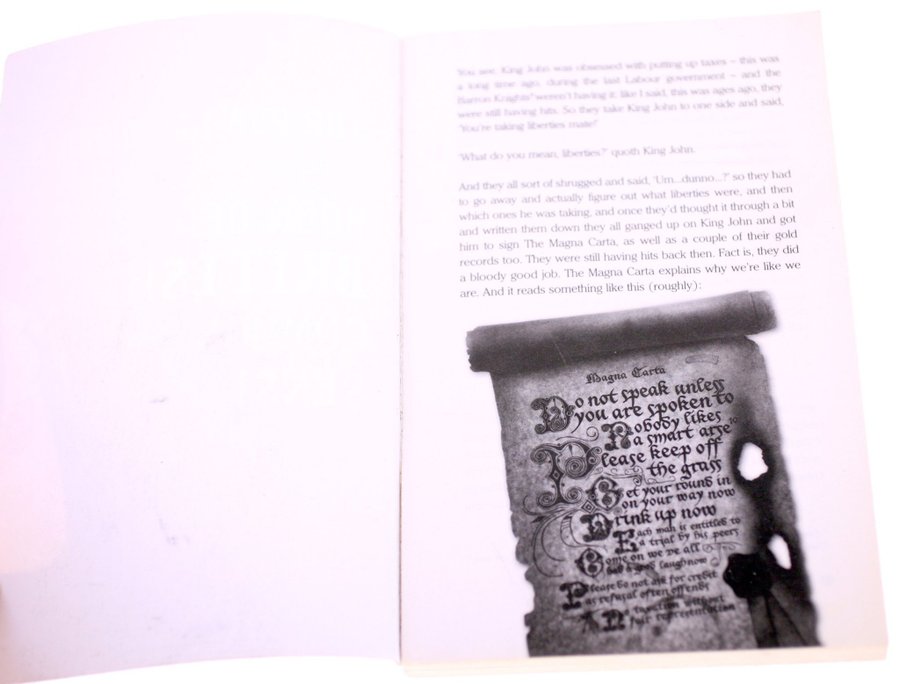 You see, King John was obsessed with putting up taxes – this was
a long time ago, during the last Labour government – and the
Barron Knights* weren't having it; like I said, this was ages ago, they
were still having hits. So they take King John to one side and said,
'You're taking liberties mate!'
'What do you mean, liberties?' quoth King John.
And they all sort of shrugged and said, 'Um...dunno...?' so they had
to go away and actually figure out what liberties were, and then
which ones he was taking, and once they'd thought it through a bit
and written them down they all ganged up on King John and got
him to sign The Magna Carta, as well as a couple of their gold
records too. They were still having hits back then. Fact is, they did
a bloody good job. The Magna Carta explains why we're like we
are. And it reads something like this (roughly):
Magna Carta
Do not speak unless
you are spoken to
Nobody likes
a smart arse
Please keep off
the grass
Get your round in
on your way now
Drink up now
Each man is entitled to
a trial by his peers
Come on we've all
had a good laugh now
Please do not ask for credit
as refusal often offends
No taxation without
fair representation